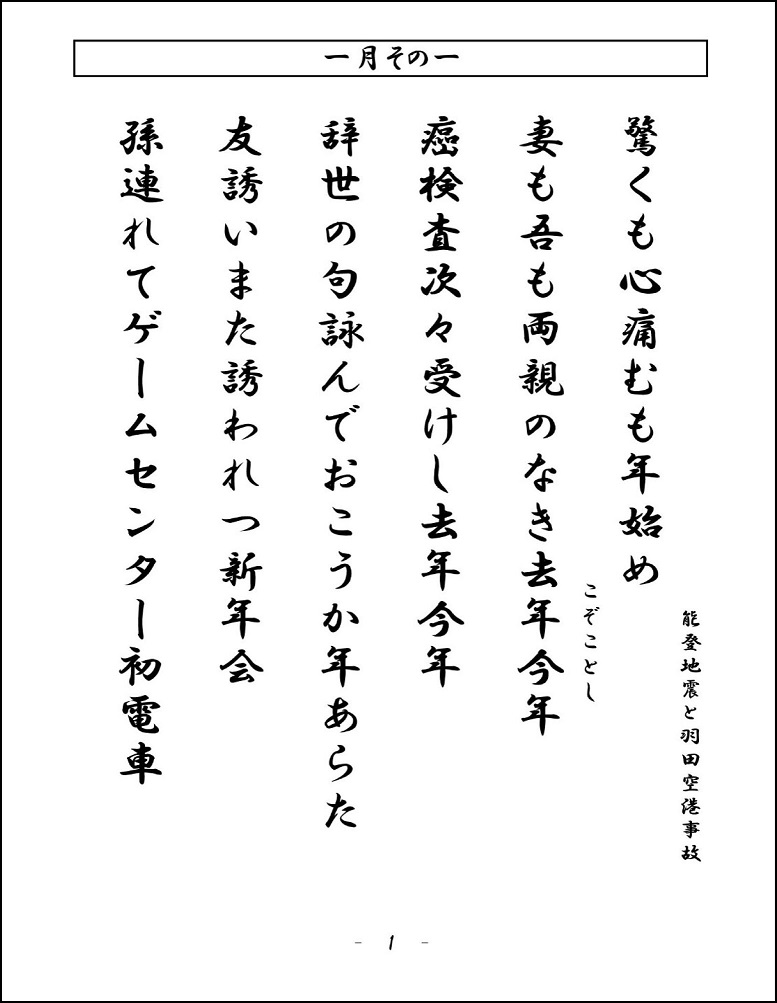 一月その一
能登地震と羽田空港事故
驚くも心痛むも年始め
こぞことし
妻も吾も両親のなき去年今年
癌検査次々受けし去年今年
辞世の句詠んでおこうか年あらた
友誘いまた誘われつ新年会
孫連れてゲームセンター初電車
- 1 -